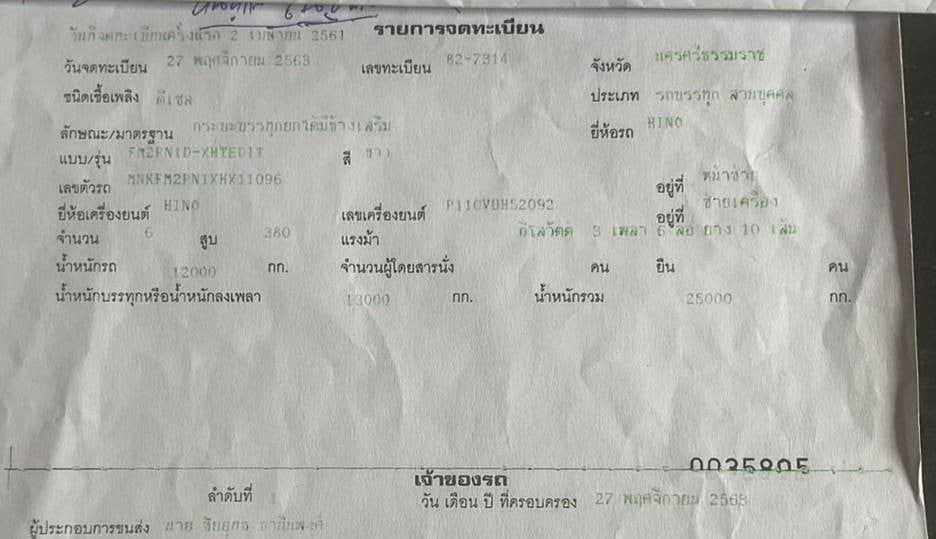 วันที่จดทะเบียนครั้งแรก 2 เมษายน 2561 รายการจดทะเบียน
วันจดทะเบียน 27 พฤศจิกายน 2563 เลขทะเบียน 82-7314 จังหวัด นครศรีธรรมราช
ชนิดเชื้อเพลิง ดีเซล ประเภท รถบรรทุก ส่วนบุคคล
ลักษณะ/มาตรฐาน กระบะบรรทุกยกได้มีข้างเสริม ยี่ห้อรถ HINO
แบบ/รุ่น FM2PN1D-XHTEDIT สี ขาว
เลขตัวรถ MNKFM2PN1XHX11096 อยู่ที่ หน้าซ้าย
ยี่ห้อเครื่องยนต์ HINO เลขเครื่องยนต์ P11CVUH52092 อยู่ที่ ซ้ายเครื่อง
จำนวน 6 สูบ 380 แรงม้า กิโลวัตต์ 3 เพลา 6 ล้อ ยาง 10 เส้น
น้ำหนักรถ 12000 กก. จำนวนผู้โดยสารนั่ง คน ยืน คน
น้ำหนักบรรทุกหรือน้ำหนักลงเพลา 13000 กก. น้ำหนักรวม 25000 กก.
0035805
เจ้าของรถ
ลำดับที่ 1 วัน เดือน ปี ที่ครอบครอง 27 พฤศจิกายน 2563
ผู้ประกอบการขนส่ง นาย ชัยยุทธ